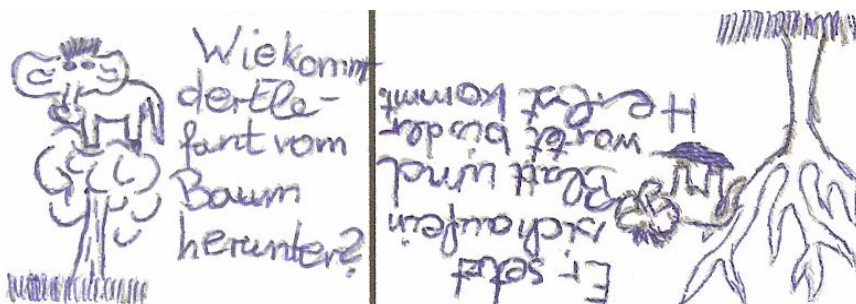 Wie kommt
der Ele-
fant vom
Baum
herunter?
Er setzt
sich auf ein
Blatt und
wartet bis der
Herbst kommt.